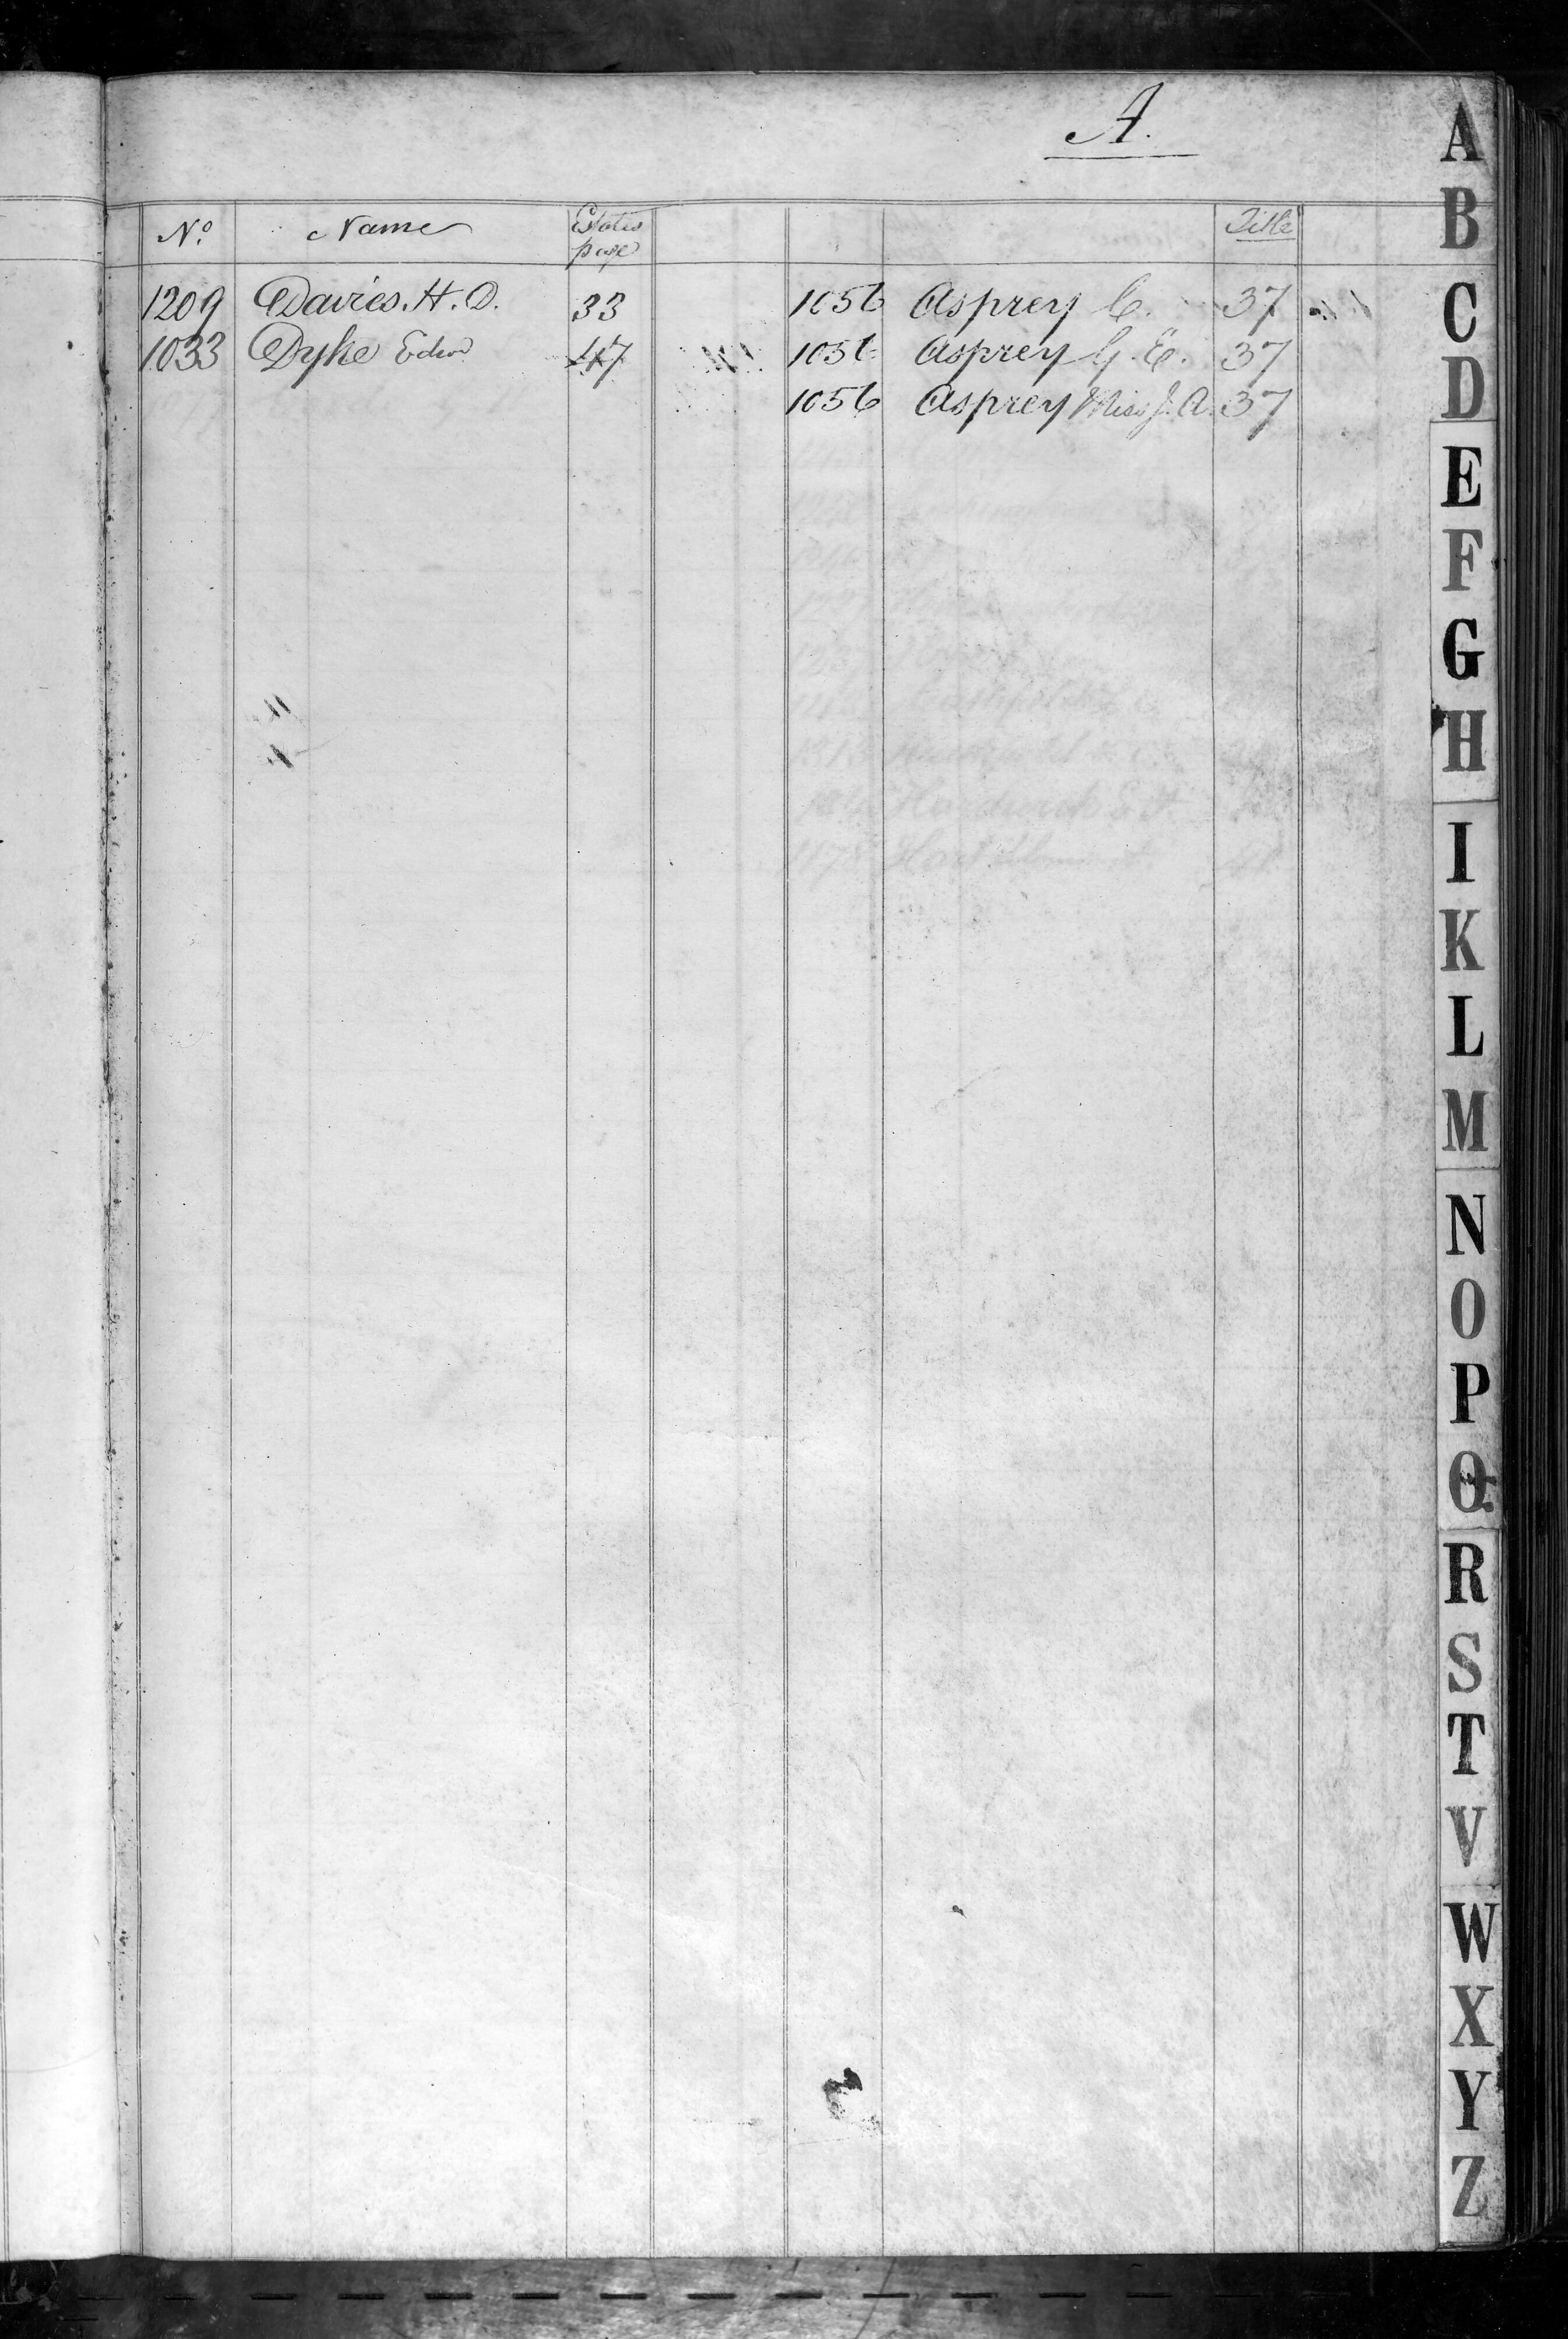 A.
No. Name Estates page Title
1209 Davies. H. D. 33 1056 Asprey C. 37
1033 Dyke Edwd 47 1056 Asprey G. E. 37
1056 Asprey Miss J. A. 37
A
B
C
D
E
F
G
H
I
K
L
M
N
O
P
Q
R
S
T
V
W
X
Y
Z